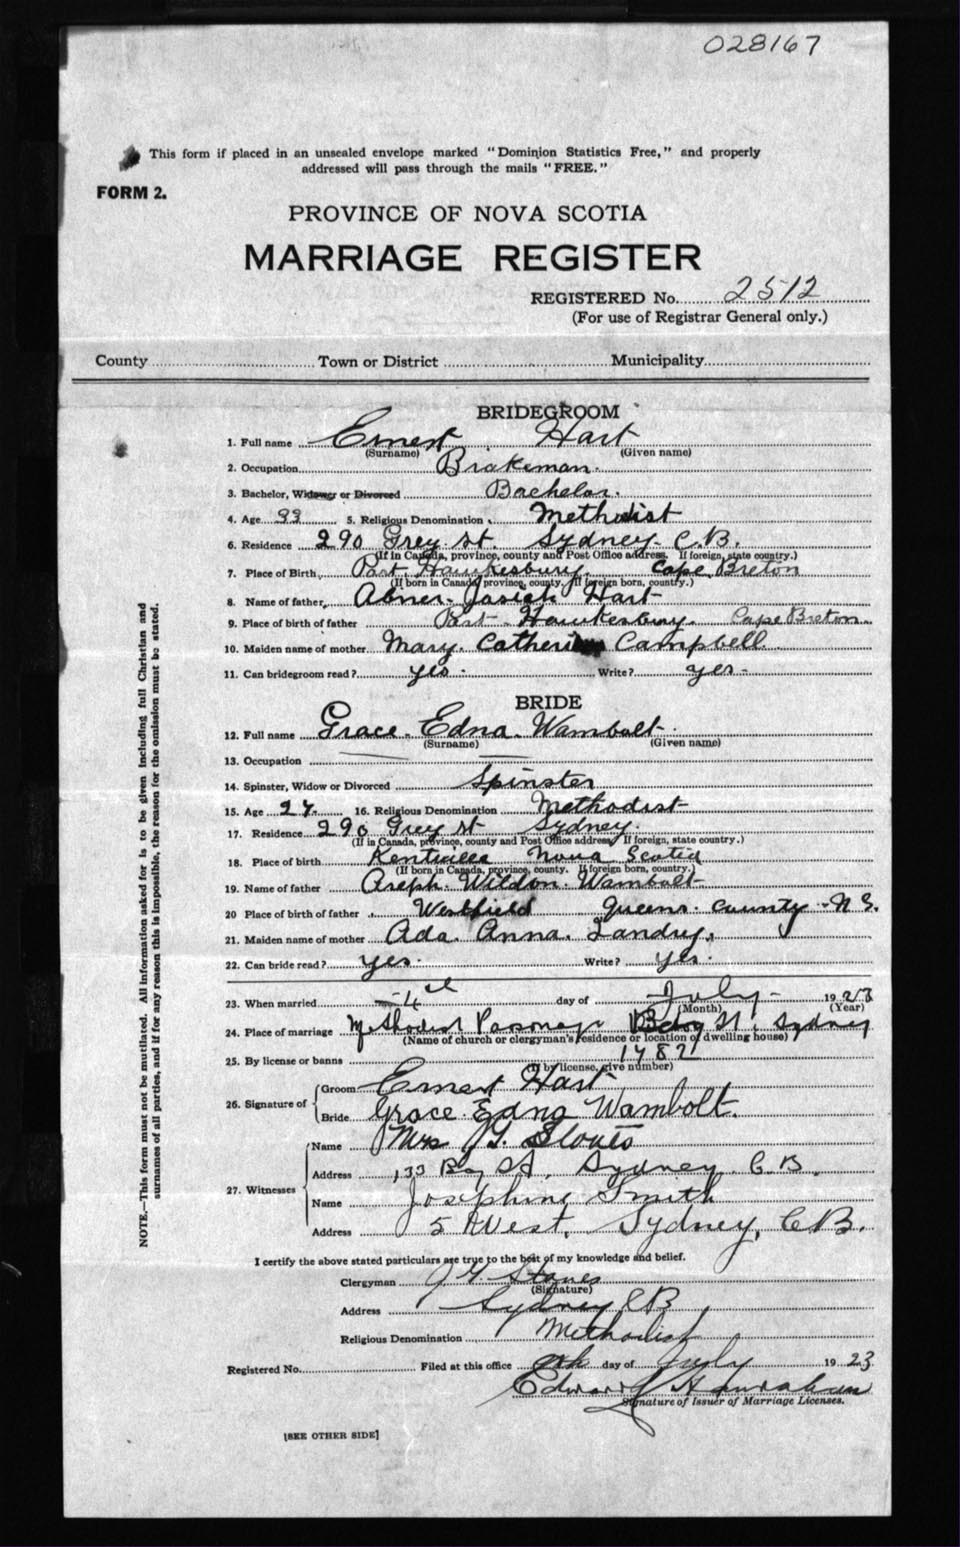 028167
This form if placed in an unsealed envelope marked "Dominion Statistics Free," and properly
addressed will pass through the mails "FREE."
FORM 2.
PROVINCE OF NOVA SCOTIA
MARRIAGE REGISTER
REGISTERED No. 2512
(For use of Registrar General only.)
County Town or District Municipality
BRIDEGROOM
1. Full name Ernest Hart
(Surname) (Given name)
2. Occupation Brakeman.
3. Bachelor, Widower or Divorced Bachelor.
4. Age 33 5. Religious Denomination Methodist
6. Residence 290 Grey St. Sydney C.B.
(If in Canada, province, county and Post Office address. If foreign, state country.)
7. Place of Birth Port Hawkesbury Cape Breton
(If born in Canada, province, county. If foreign born, country.)
8. Name of father Abner Josiah Hart
9. Place of birth of father Port Hawkesbury. Cape Breton.
10. Maiden name of mother Mary Catherine Campbell
11. Can bridegroom read? yes. Write? yes.
BRIDE
12. Full name Grace Edna Wambolt.
(Surname) (Given name)
13. Occupation
14. Spinster, Widow or Divorced Spinster
15. Age 24. 16. Religious Denomination Methodist
17. Residence 290 Grey St Sydney.
(If in Canada, province, county and Post Office address. If foreign, state country.)
18. Place of birth Kentville Nova Scotia
(If born in Canada, province, county. If foreign born, country.)
19. Name of father Wambolt
20 Place of birth of father Westfield Queens County N S.
21. Maiden name of mother Ada Anna Landry,
22. Can bride read? yes. Write? yes.
23. When married 4th day of July 1923
(Month) (Year)
24. Place of marriage Methodist Parsonage St, Sydney
(Name of church or clergyman's residence or location of dwelling house)
25. By license or banns
(If by license, give number)
26. Signature of Groom Ernest Hart
Bride Grace Edna Wambolt.
27. Witnesses Name Mrs J.G.
Address 133 Bay St, Sydney C B.
Name Josephine Smith
Address 5 West, Sydney, C.B.
I certify the above stated particulars are true to the best of my knowledge and belief.
Clergyman J G
(Signature)
Address Sydney CB
Religious Denomination Methodist
Registered No. Filed at this office day of July 1923
Edward
Signature of Issuer of Marriage Licenses.
[SEE OTHER SIDE]
NOTE.—This form must not be mutilated. All information asked for is to be given including full Christian and
surnames of all parties, and if for any reason this is impossible, the reason for the omission must be stated.